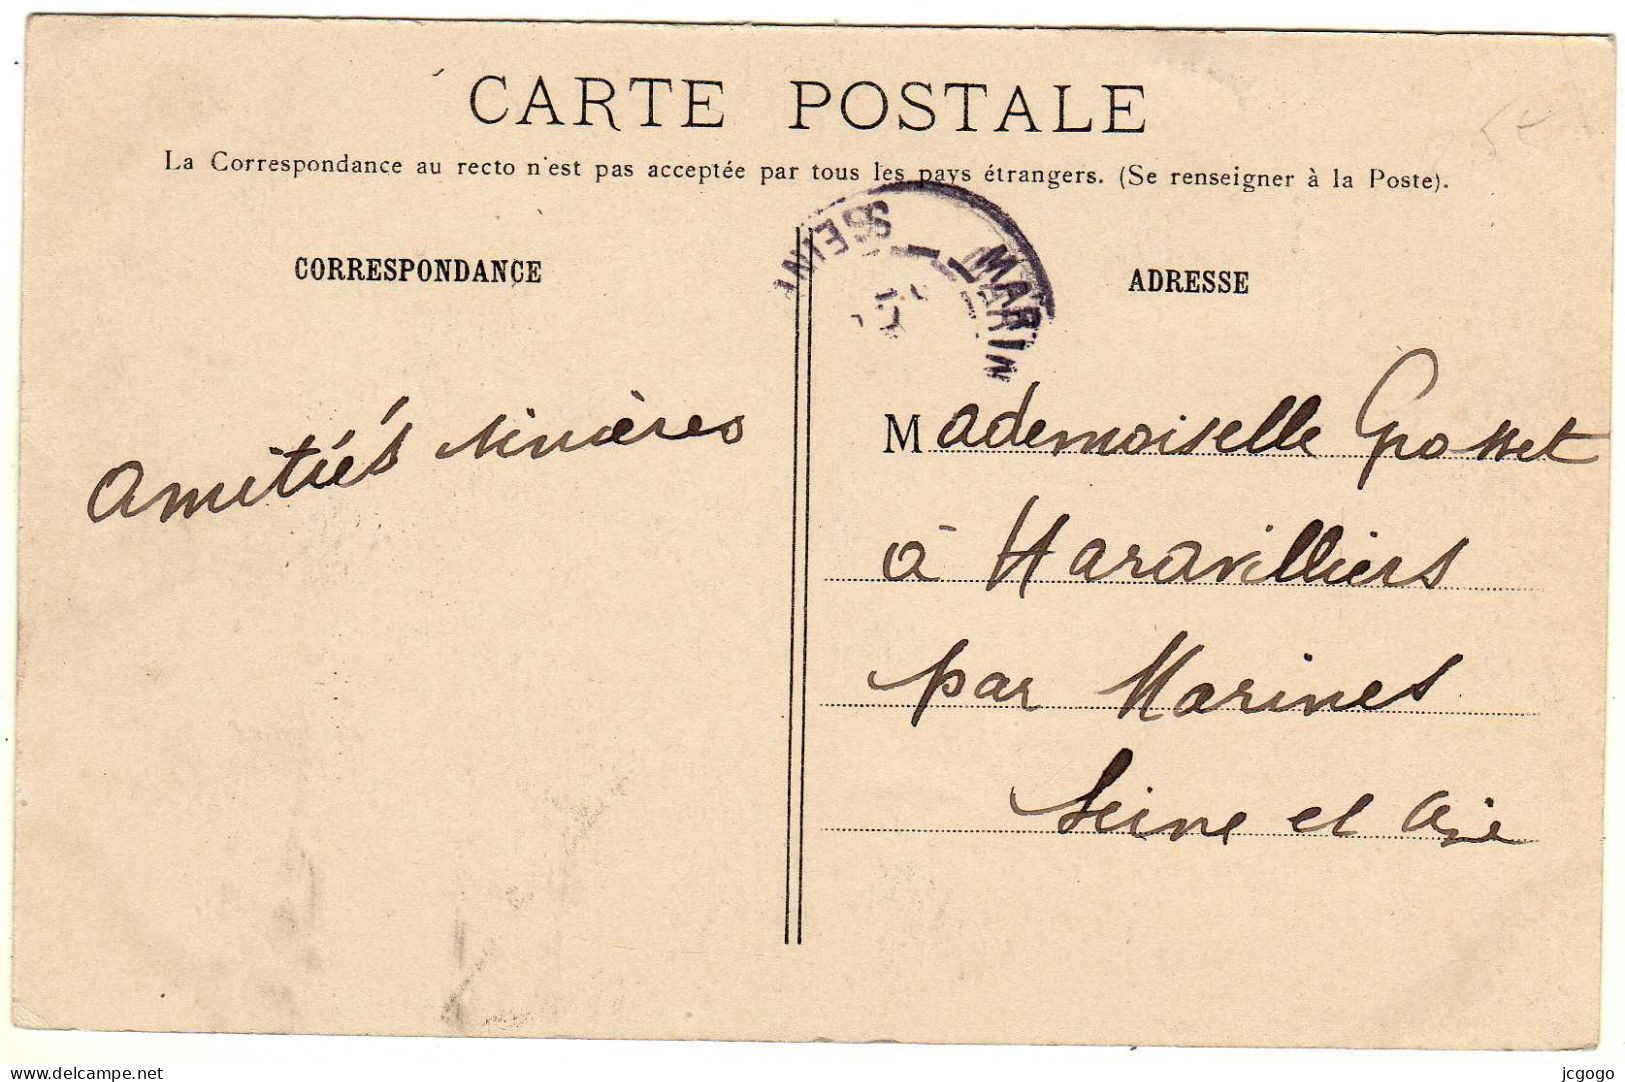 CARTE POSTALE
La Correspondance au recto n'est pas acceptée par tous les pays étrangers. (Se renseigner à la Poste).
CORRESPONDANCE
ADRESSE
SEINE
MARIN
Amitiés sincères
Mademoiselle Grosset
à Haravilliers
par Marines
Seine et Oise
delcampe.net
jcgogo